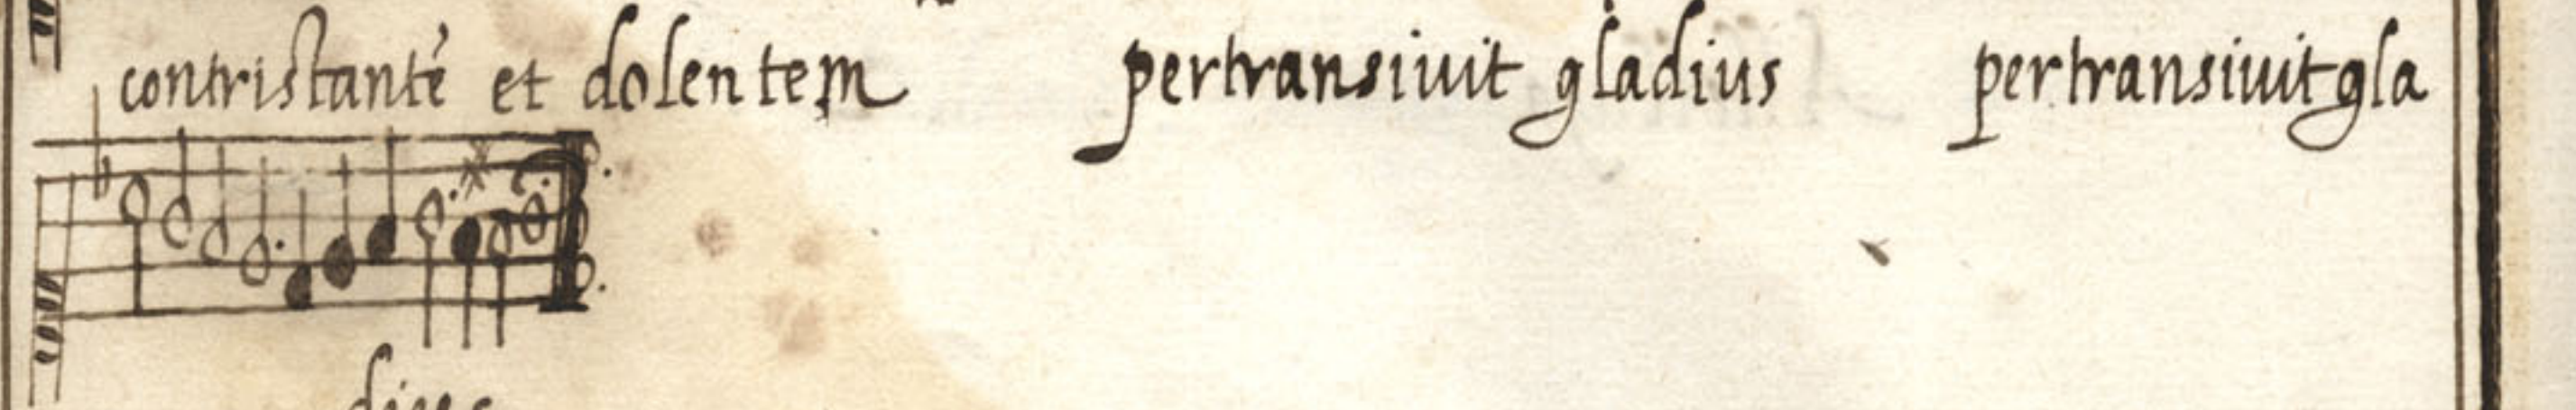 contristantē et dolentem pertransiuit gladius pertransiuit gla
dius